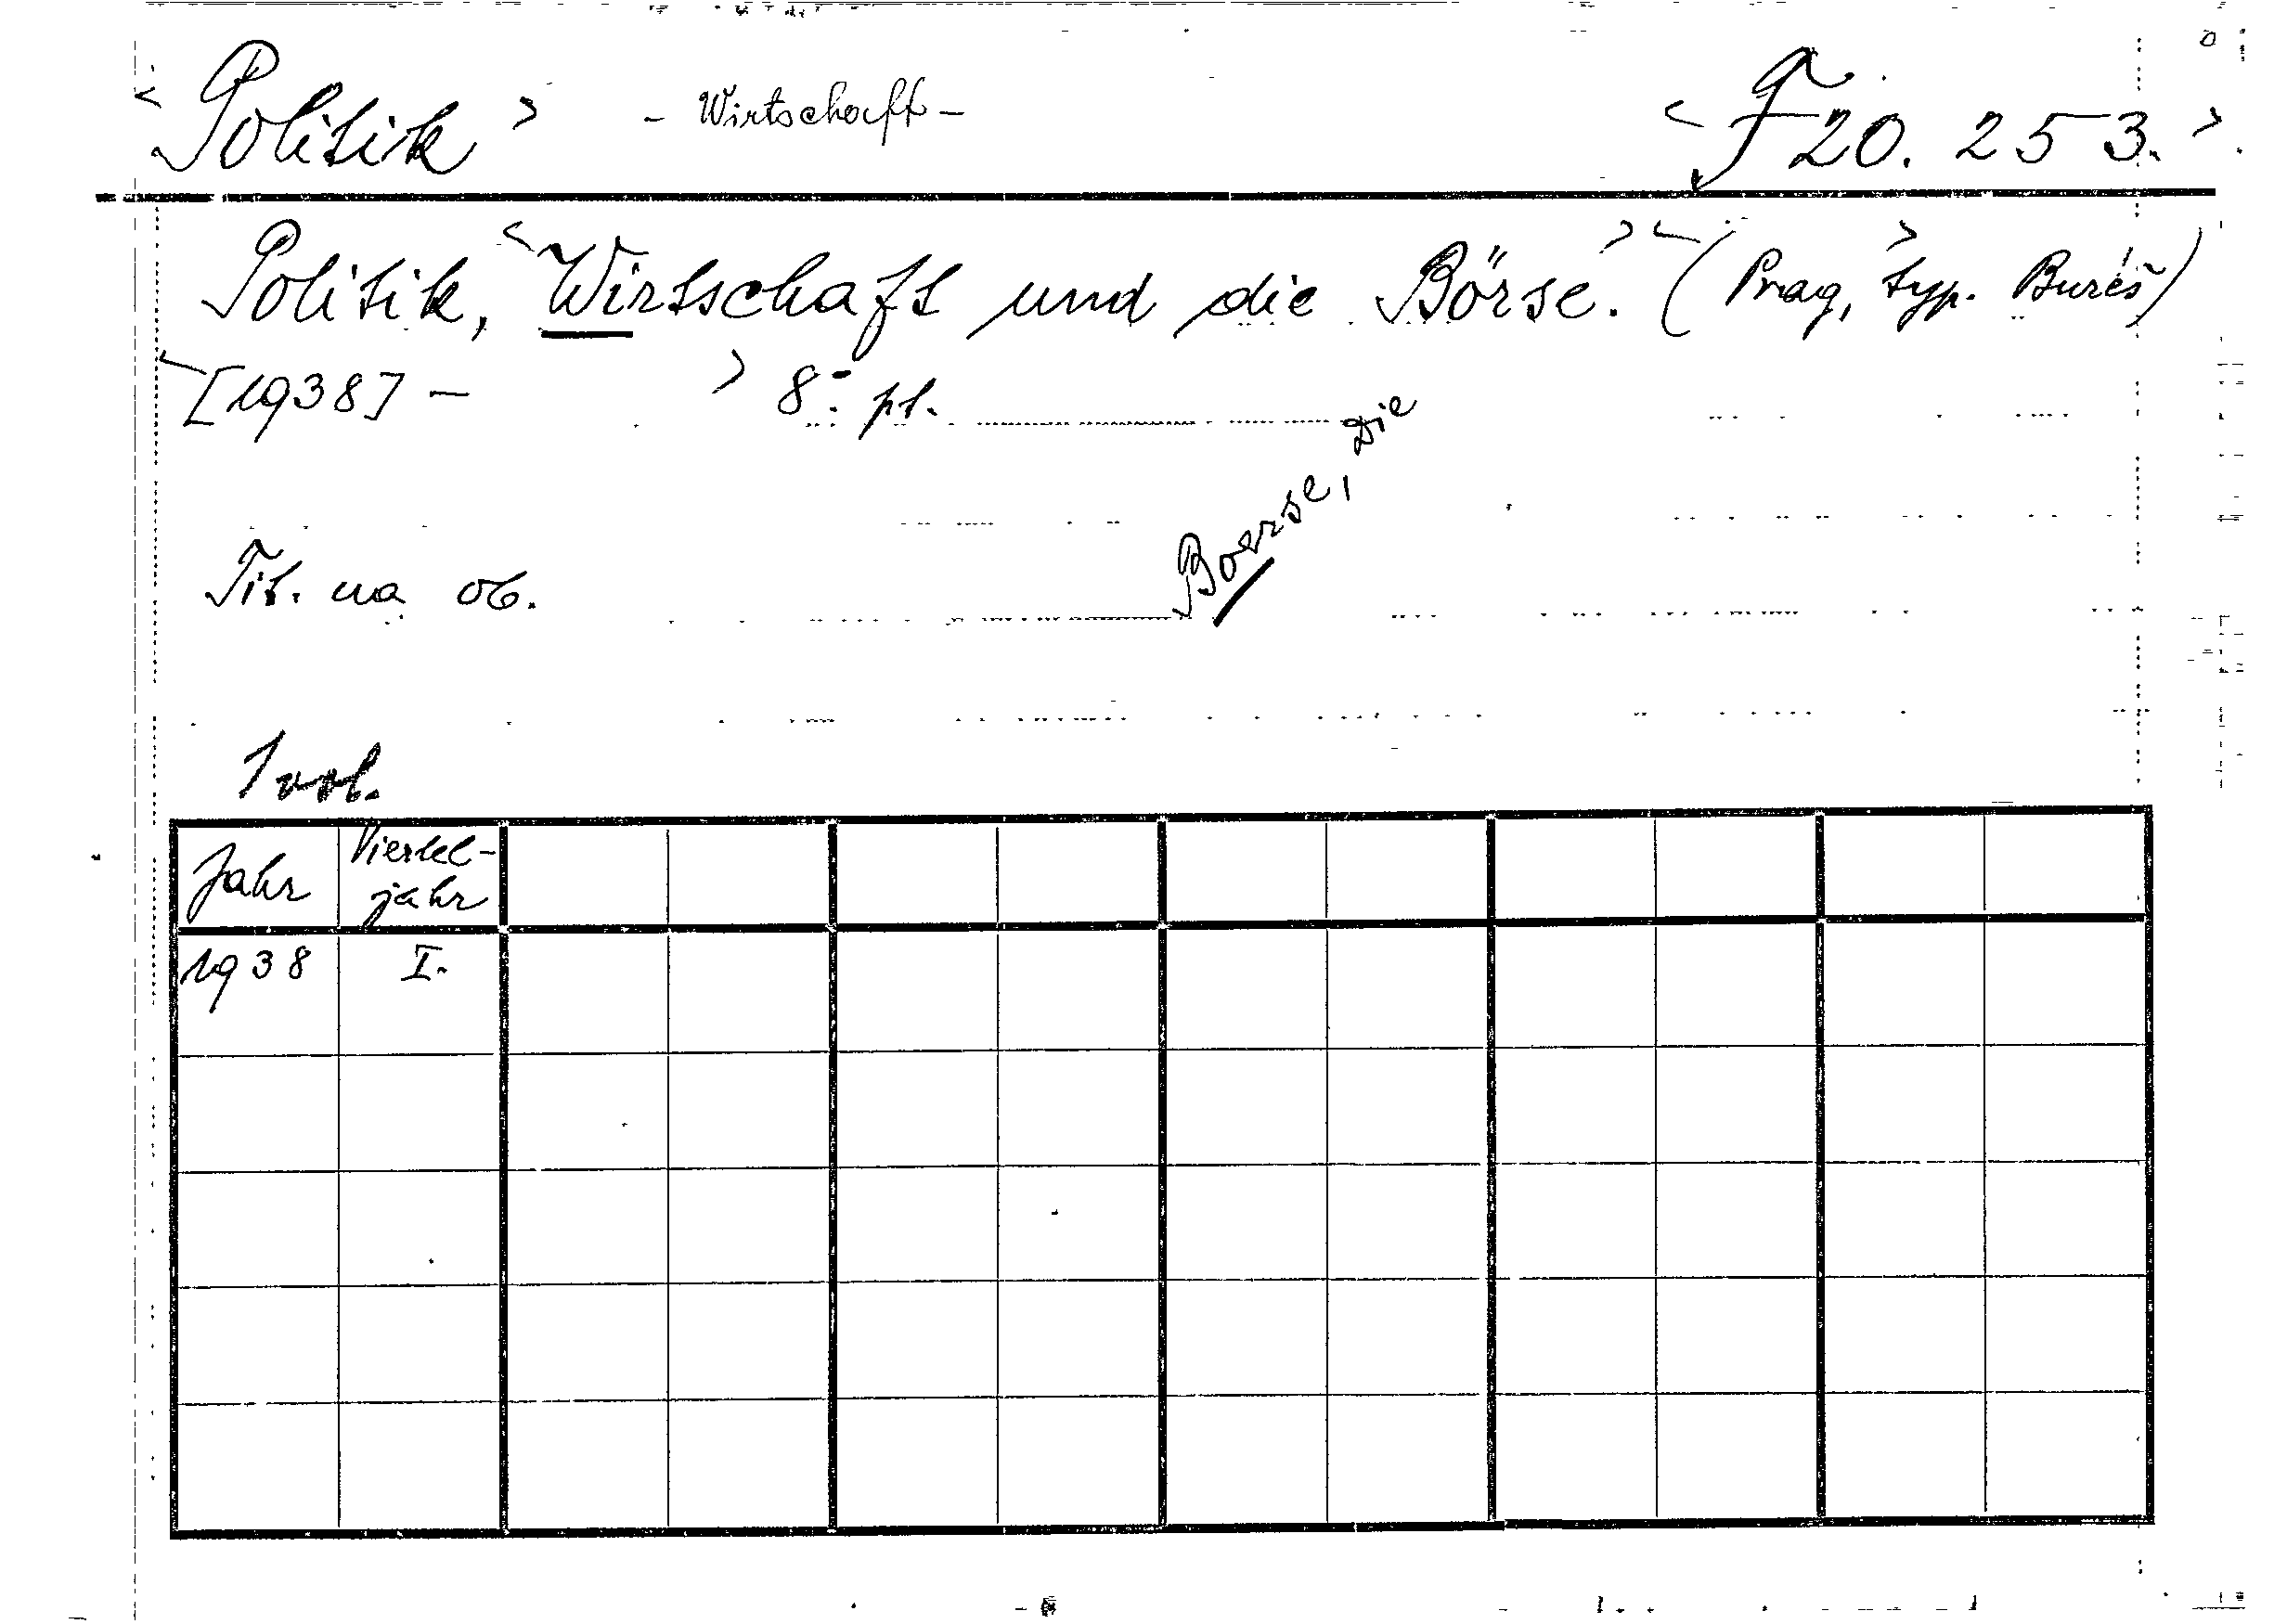 <Politik> - Wirtschaft - <F 20. 253.>
Politik, <Wirtschaft und die Börse.> <(Prag,> typ. Bureš)
<[1938] - > 8° pl.
Boerse, Die
Tit. na ob.
1 vol.
Jahr Viertel-
jahr
1938 I.